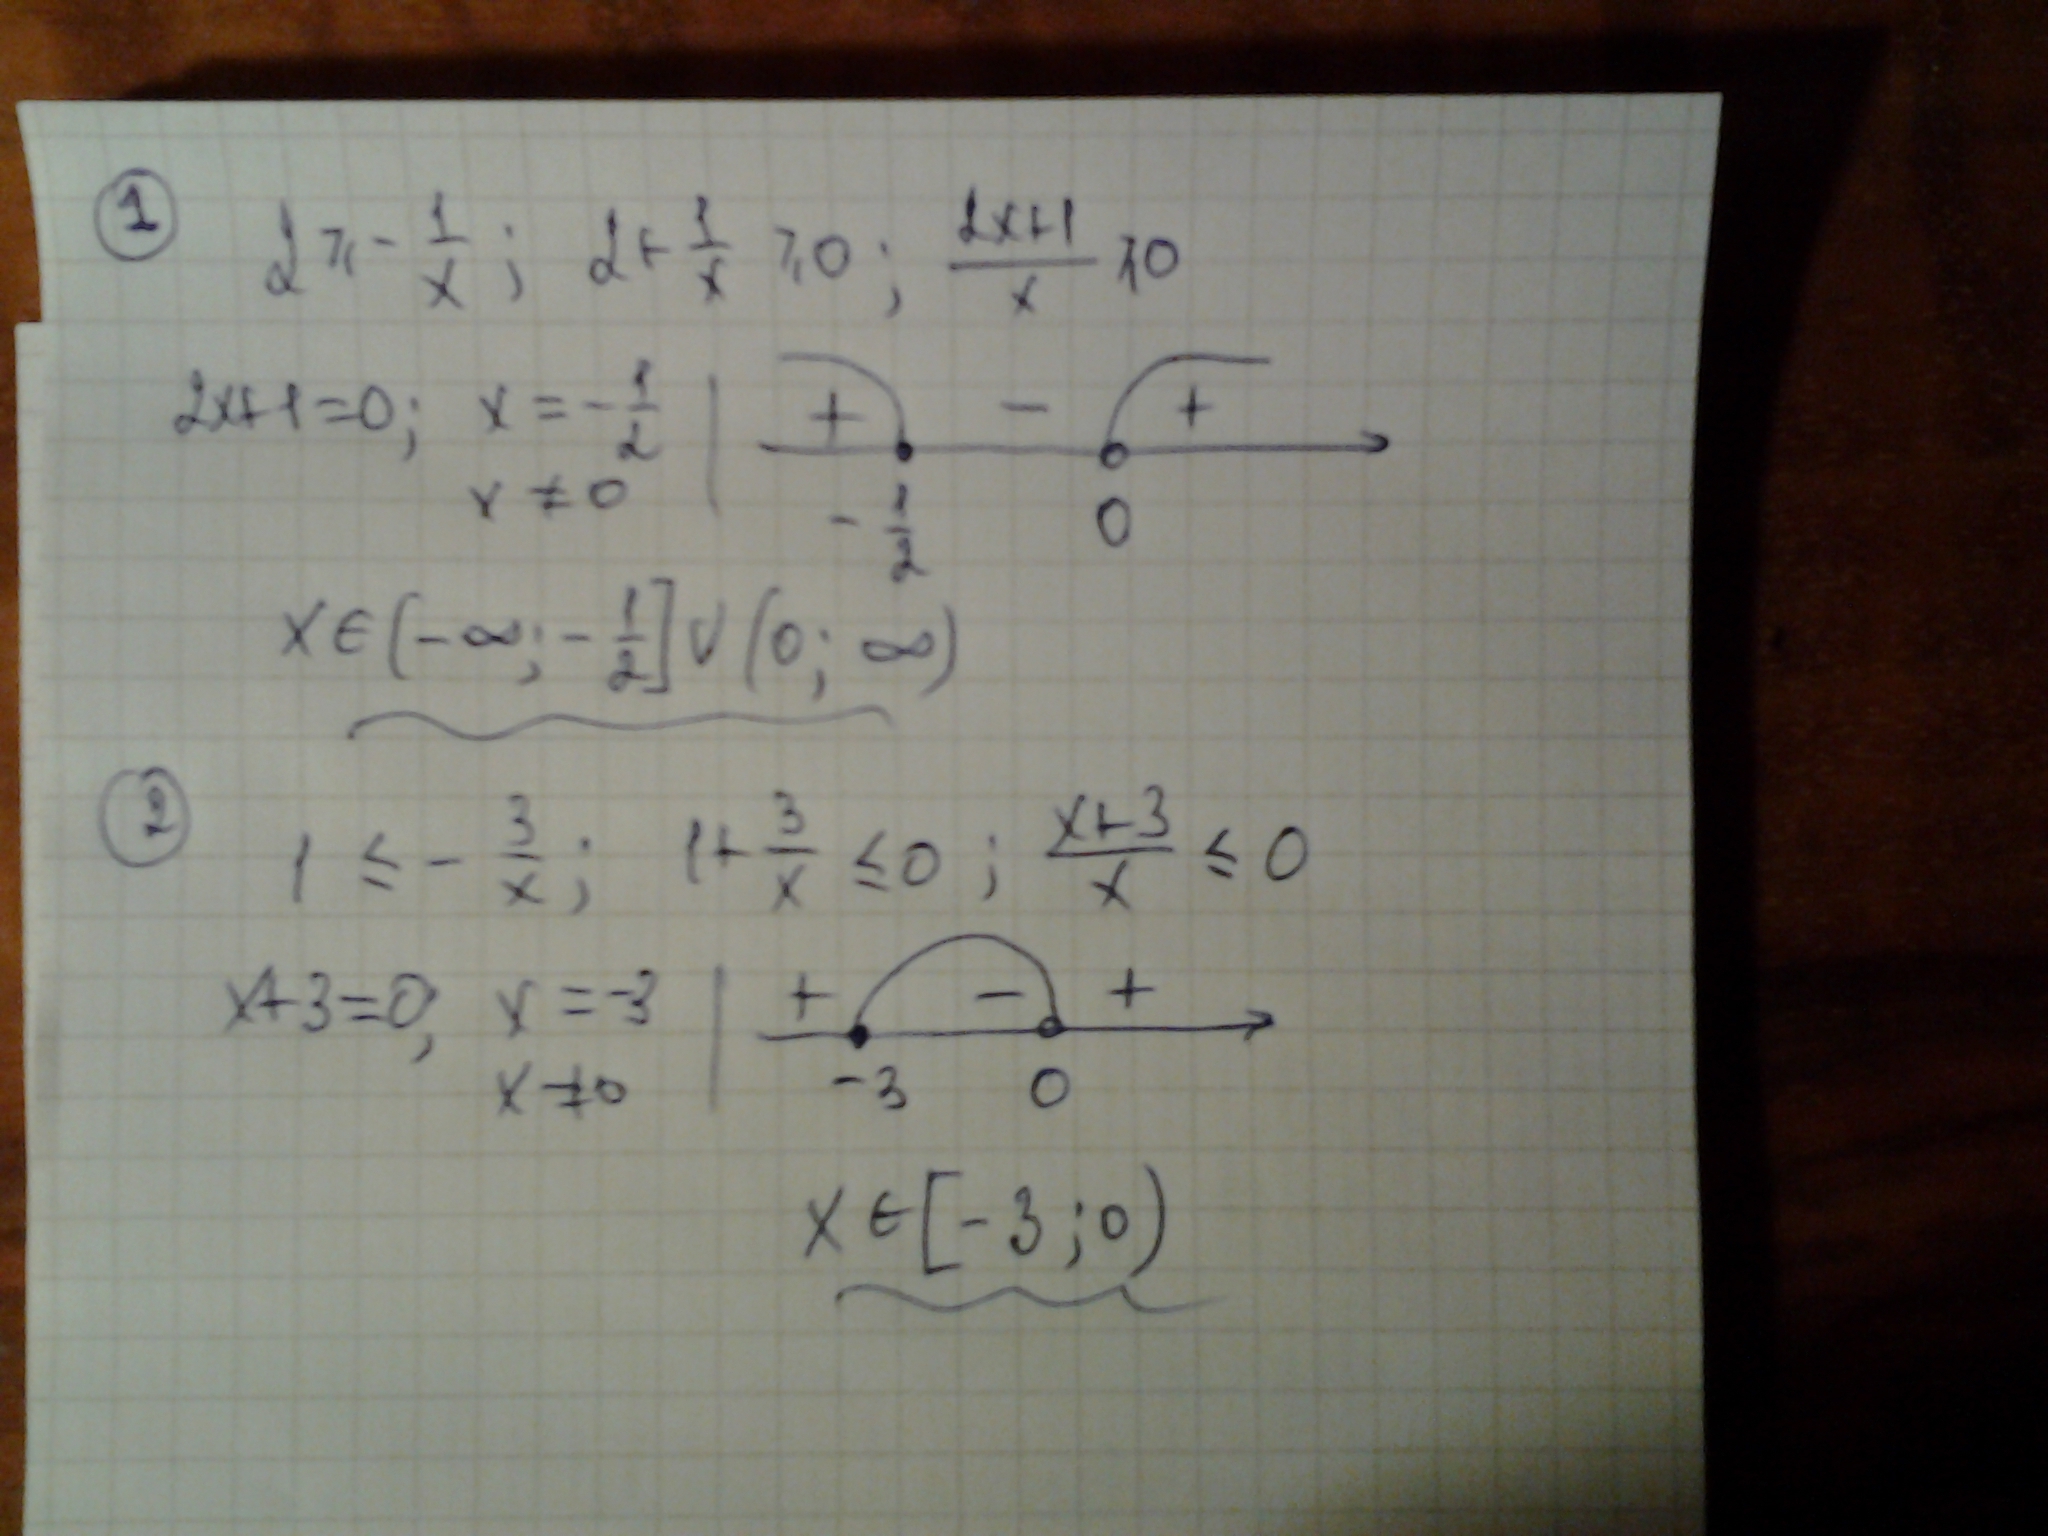 1
2 ≥ - 1/x ; 2 + 1/x ≥ 0 ; (2x+1)/x ≥ 0
2x+1=0; x = - 1/2 | + - +
x ≠ 0 - 1/2 0
x ∈ (-∞; - 1/2] ∪ (0; ∞)
2
1 ≤ - 3/x ; 1 + 3/x ≤ 0 ; (x+3)/x ≤ 0
x+3=0; x = -3 | + - +
x ≠ 0 -3 0
x ∈ [-3; 0)